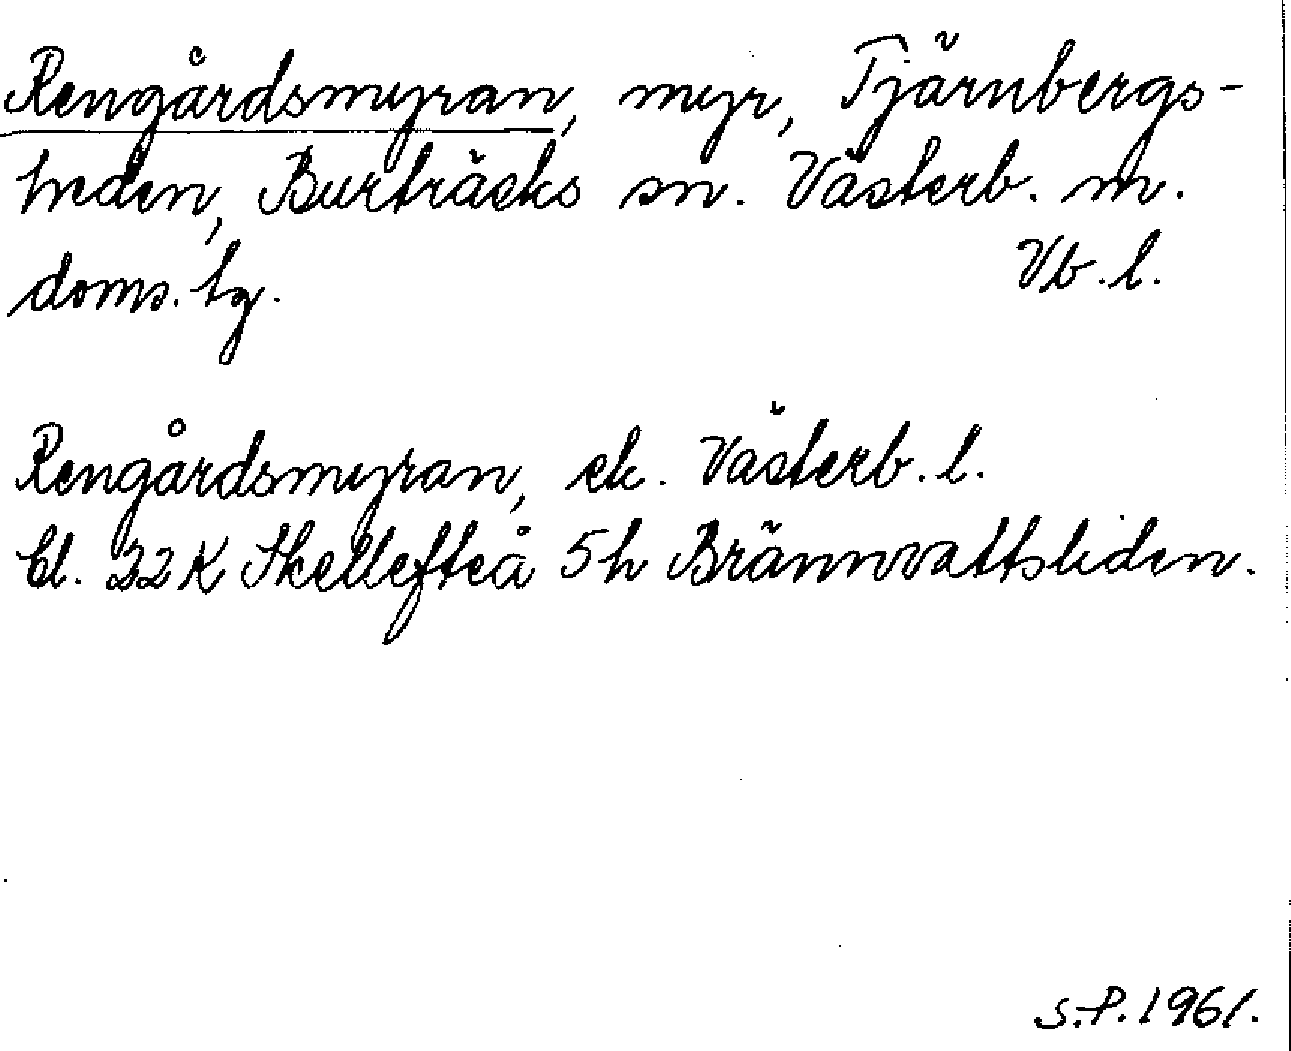 Rengårdsmyran, myr, Tjärnbergs-
heden, Burträsks sn. Västerb. m.
doms. hg. Vb. l.
Rengårdsmyran, ek. Västerb. l.
bl. 22 K Skellefteå 5h Brännvattsliden.
S.P. 1961.